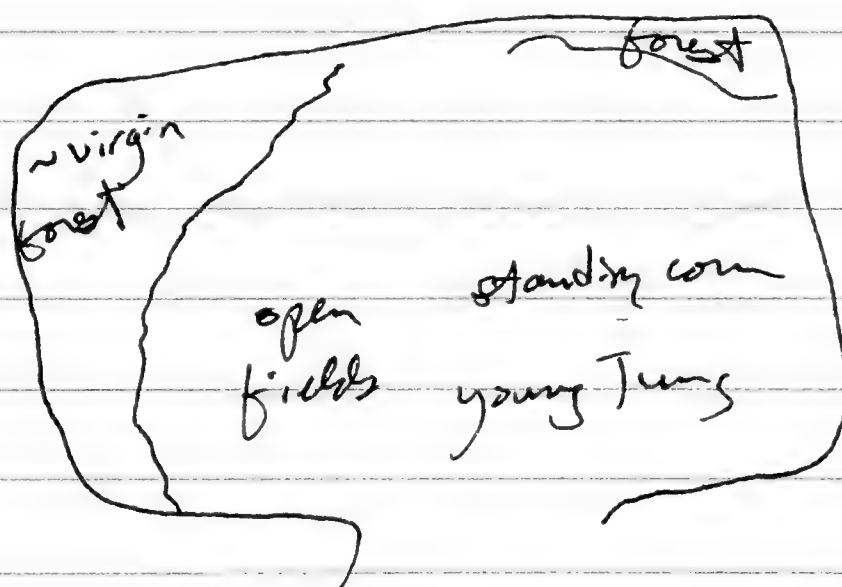 forest
~ virgin
forest
open
fields
standing corn
young Tung